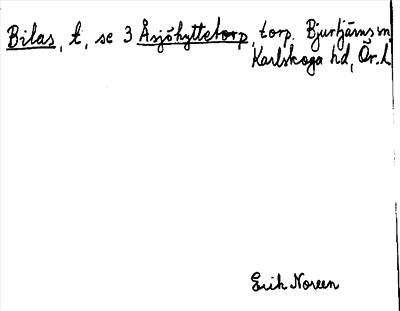 Bilas, t, se 3 Åsjöhyttetorp, torp. Bjurtjärns sn,
Karlskoga hd, Ör. l.
Erik Noreen